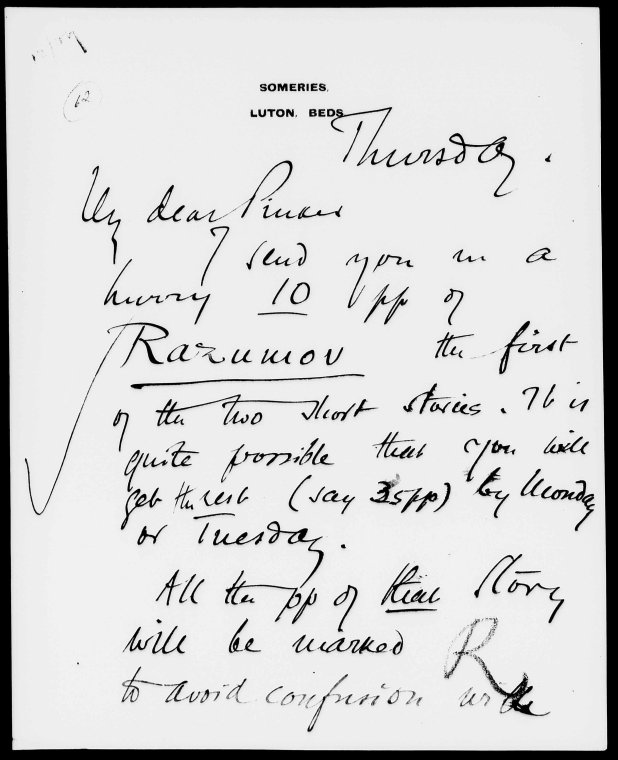 62
SOMERIES,
LUTON, BEDS.
Thursday.
My dear Pinker
I send you in a
hurry 10 pp of
Razumov the first
of the two short stories. It is
quite possible that you will
get the rest (say 35pp) by Monday
or Tuesday.
All the pp of that Story
will be marked R
to avoid confusion with